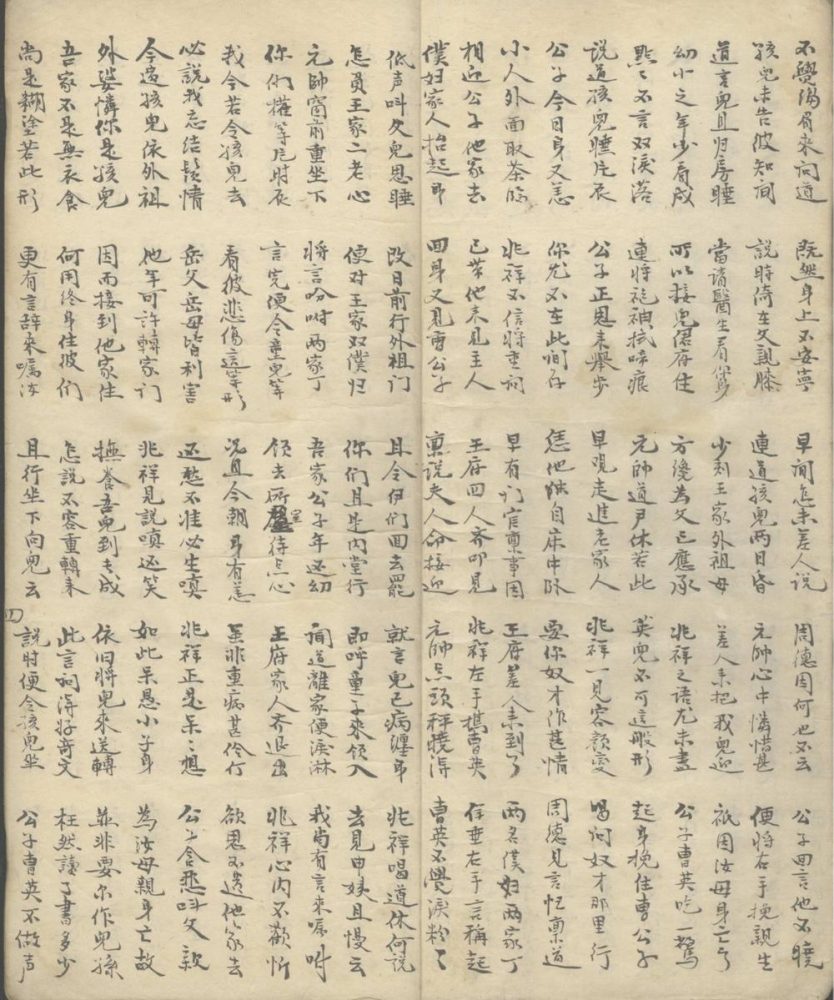 不覺傷眉來问道 既然身上不安寧 早间怎未差人說 周德因何也不云 公子回言他不曉
孩兒未告彼知闻 說時倚在父親膝 連道孩兒兩日昏 元帥心中憐惜甚 便將右手挽親生
道言兒且归房睡 當請醫生看 少刻王家外祖母 差人来把我兒迎 祇因汝母身亡了
幼小之年少看成 所以接兒府住 方後為父已應承 兆祥之語尤未盡 公子曹英吃一驚
點々不言双淚落 連將袍袖拭啼痕 元帥道尹休若此 英兒不可這般形 起身挽住曹公子
說道孩兒睡片衣 公子正思未舉步 早观走進老家人 兆祥一見容顏变 喝问奴才那里行
公子今日身又恙 你尤不在此间存 恁他独自床中卧 要你奴才作甚情 周德見言忙禀道
小人外面取茶臨 兆祥不信將童问 早有门官禀事因 王府差人来到了 两名僕妇两家丁
相迎公子他家去 已带他来見主人 王府四人齐叩見 兆祥左手携曹英 侄垂右手言称起
僕妇家人抬起身 回身又見曹公子 禀說夫人命接迎 元帥点頭称曉得 曹英不覺淚紛々
低声叫父兒思睡 改日前行外祖门 且令伊们回去罷 就言兒已病纏身 兆祥喝道休何說
怎負王家二老心 便对王家双僕归 你们且是内堂行 即呼童子来领入 去見申姨且慢云
元帥窗前重坐下 将言吩咐两家丁 吾家公子年还幼 闻道離家便淚淋 我尚有言来嘱咐
你们权等片时辰 言完便令童兒等 领去所室待点心 王府家人齐退出 兆祥心内不歡忻
我今若令孩兒去 看彼悲傷這等形 况且今朝身有恙 虽非重病甚伶仃 欲思不遣他家去
必說我忘结髮情 岳父岳母皆利害 还愁不准必生嗔 兆祥正是呆々想 公子含悲叫父親
今遣孩兒依外祖 他年可許轉家门 兆祥見說嗔还笑 如此呆愚小子身 為汝母親身亡故
外婆憐你是孩兒 因而接到他家住 撫養吾兒到長成 依旧將兒来送轉 並非要尔作兒孫
吾家不是無衣食 何用終身住彼们 怎說不容重轉来 此言问得好奇文 枉然讀了書多少
尚是糊塗若此形 更有言辞来嘱汝 且行坐下向兒云 說时便令孩兒坐 公子曹英不做声
四